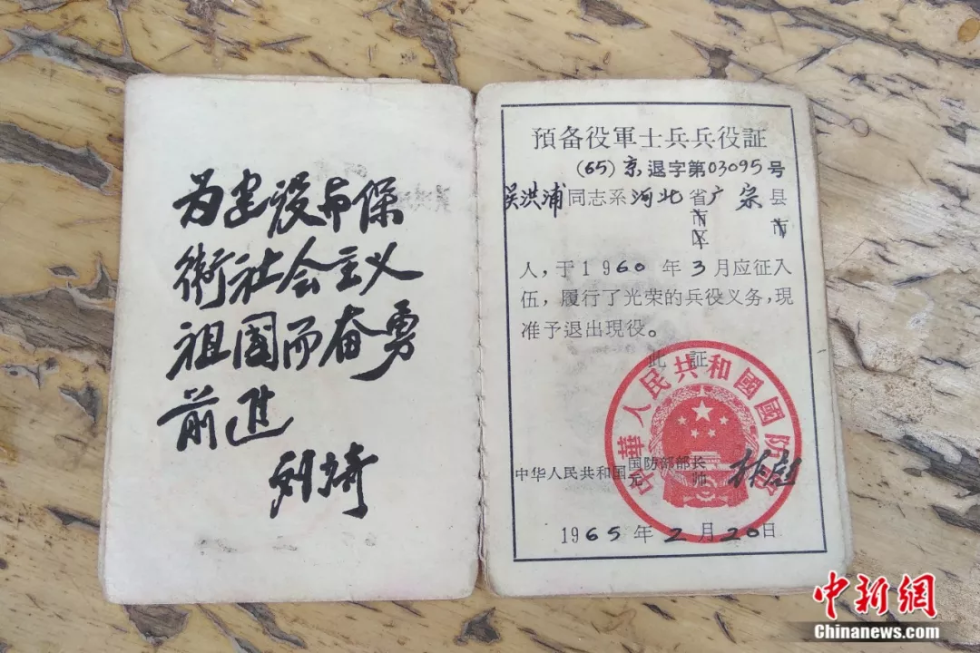 为建设与保
衛社会主义
祖国而奋勇
前进
刘琦
預备役軍士兵兵役証
(65)京退字第03095号
吴洪浦同志系河北省广宗县
市 市
区
人，于1960年3月应征入
伍，履行了光荣的兵役义务，現
准予退出現役。
此証
中华人民共和国国防部部长
元帅
林彪
中華人民共和國國防部
1965年2月20日
中新網
Chinanews.com